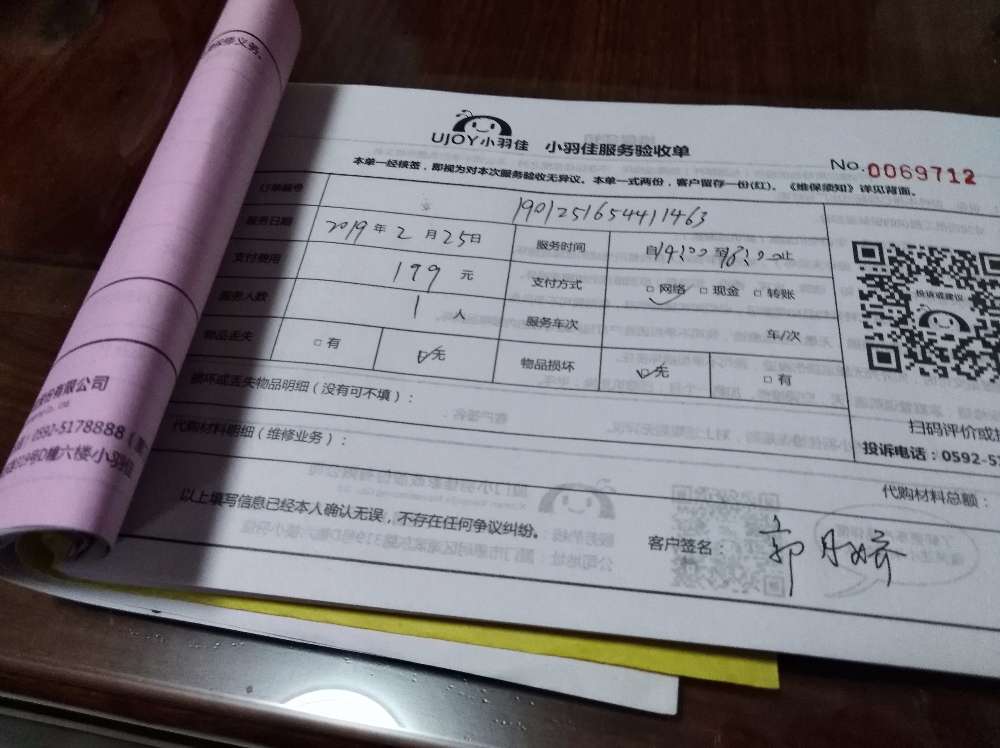 保修义务。
UJOY小羽佳 小羽佳服务验收单
No.0069712
本单一经核签，即视为对本次服务验收无异议。本单一式两份，客户留存一份(红)。《维保须知》详见背面。
订单编号 1901251654411463
服务日期 2019年2月25日 服务时间 自14:00至18:00止
支付费用 199元 支付方式 □网络 □现金 □转账
服务人数 1人 服务车次 车/次
物品丢失 □有 □无 物品损坏 □无 □有
投诉或建议
损坏或丢失物品明细（没有可不填）：
扫码评价或
投诉电话：0592-5
代购材料明细（维修业务）：
代购材料总额：
以上填写信息已经本人确认无误，不存在任何争议纠纷。
客户签名：郭月娇
份有限公司
：0592-5178888
19号D幢六楼小羽佳